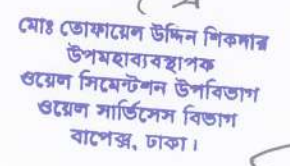 মোঃ তোফায়েল উদ্দিন শিকদার
উপমহাব্যবস্থাপক
ওয়েল সিমেন্টেশন উপবিভাগ
ওয়েল সার্ভিসেস বিভাগ
বাপেক্স, ঢাকা।